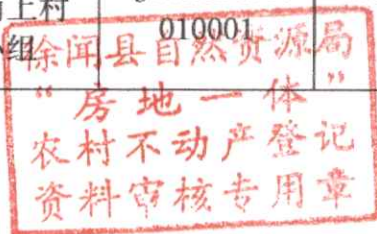 上村
小组
010001
徐闻县自然资源局
“房地一体”
农村不动产登记
资料审核专用章